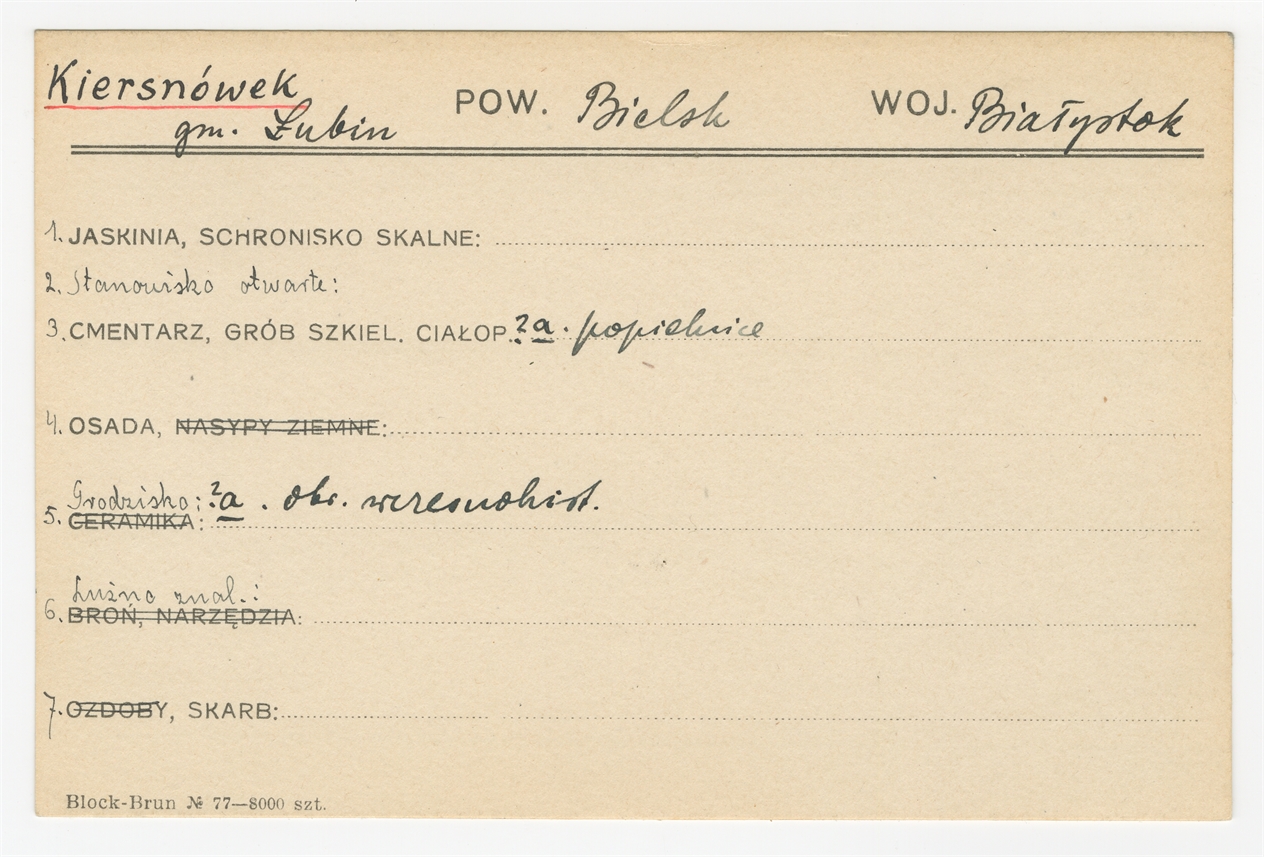 Kiersnówek POW. Bielsk WOJ. Białystok
gm. Łubin
1. JASKINIA, SCHRONISKO SKALNE:
2. Stanowisko otwarte:
3. CMENTARZ, GRÓB SZKIEL. CIAŁOP. ?a. popielnice
4. OSADA, NASYPY ZIEMNE:
Grodzisko: ?a. obr. wczesnohist.
5. CERAMIKA:
Luźno znal.:
6. BROŃ, NARZĘDZIA:
7. OZDOBY, SKARB:
Block-Brun № 77—8000 szt.